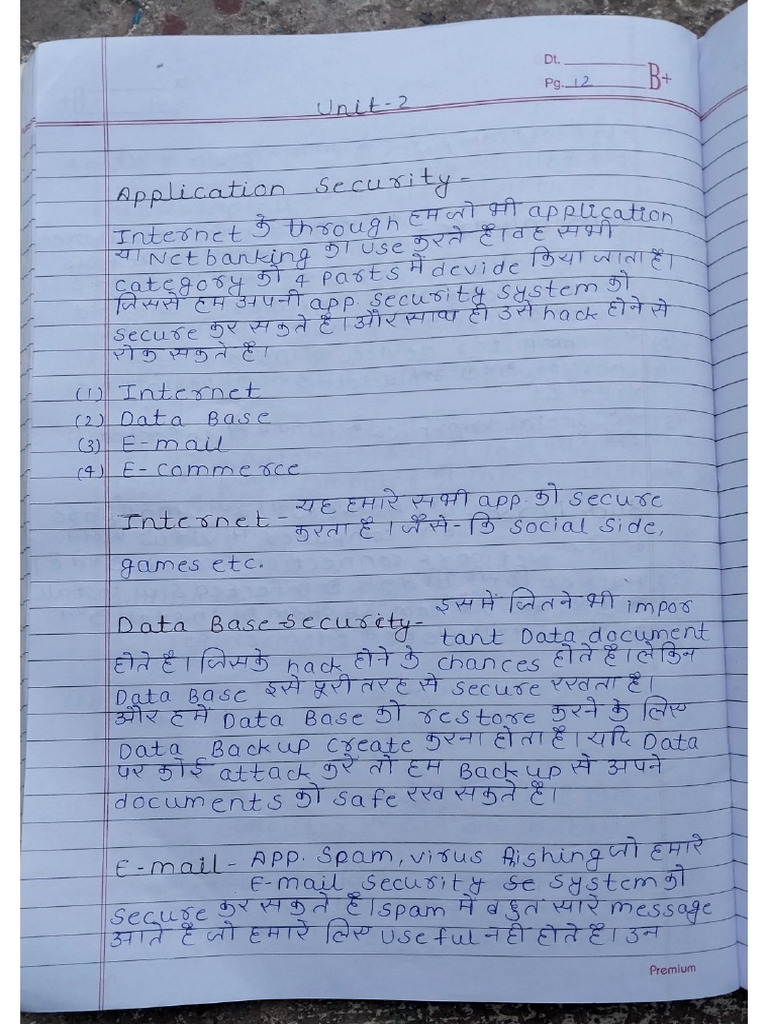 Dt.
Pg. 12 B+
Unit-2
Application Security-
Internet के through हम जो भी application
या Netbanking का use करते है। वह सभी
category को 4 parts में devide किया जाता है।
जिससे हम अपनी app. security system को
secure कर सकते है। और साथ ही उसे hack होने से
रोक सकते है।
(1) Internet
(2) Data Base
(3) E-mail
(4) E-commerce
Internet- यह हमारे सभी app. को secure
करता है। जैसे- कि social side,
games etc.
Data Base Security- इसमें जितने भी impor
tant Data document
होते है। जिसके hack होने के chances होते है। लेकिन
Data Base इसे पूरी तरह से secure रखता है।
और हमें Data Base को restore करने के लिए
Data Backup create करना होता है। यदि Data
पर कोई attack करें तो हम Backup से अपने
documents को safe रख सकते है।
E-mail- App. spam, virus Phishing जो हमारे
E-mail security se system को
secure कर सकते है। spam में बहुत सारे message
आते है जो हमारे लिए useful नही होते है। उन
Premium